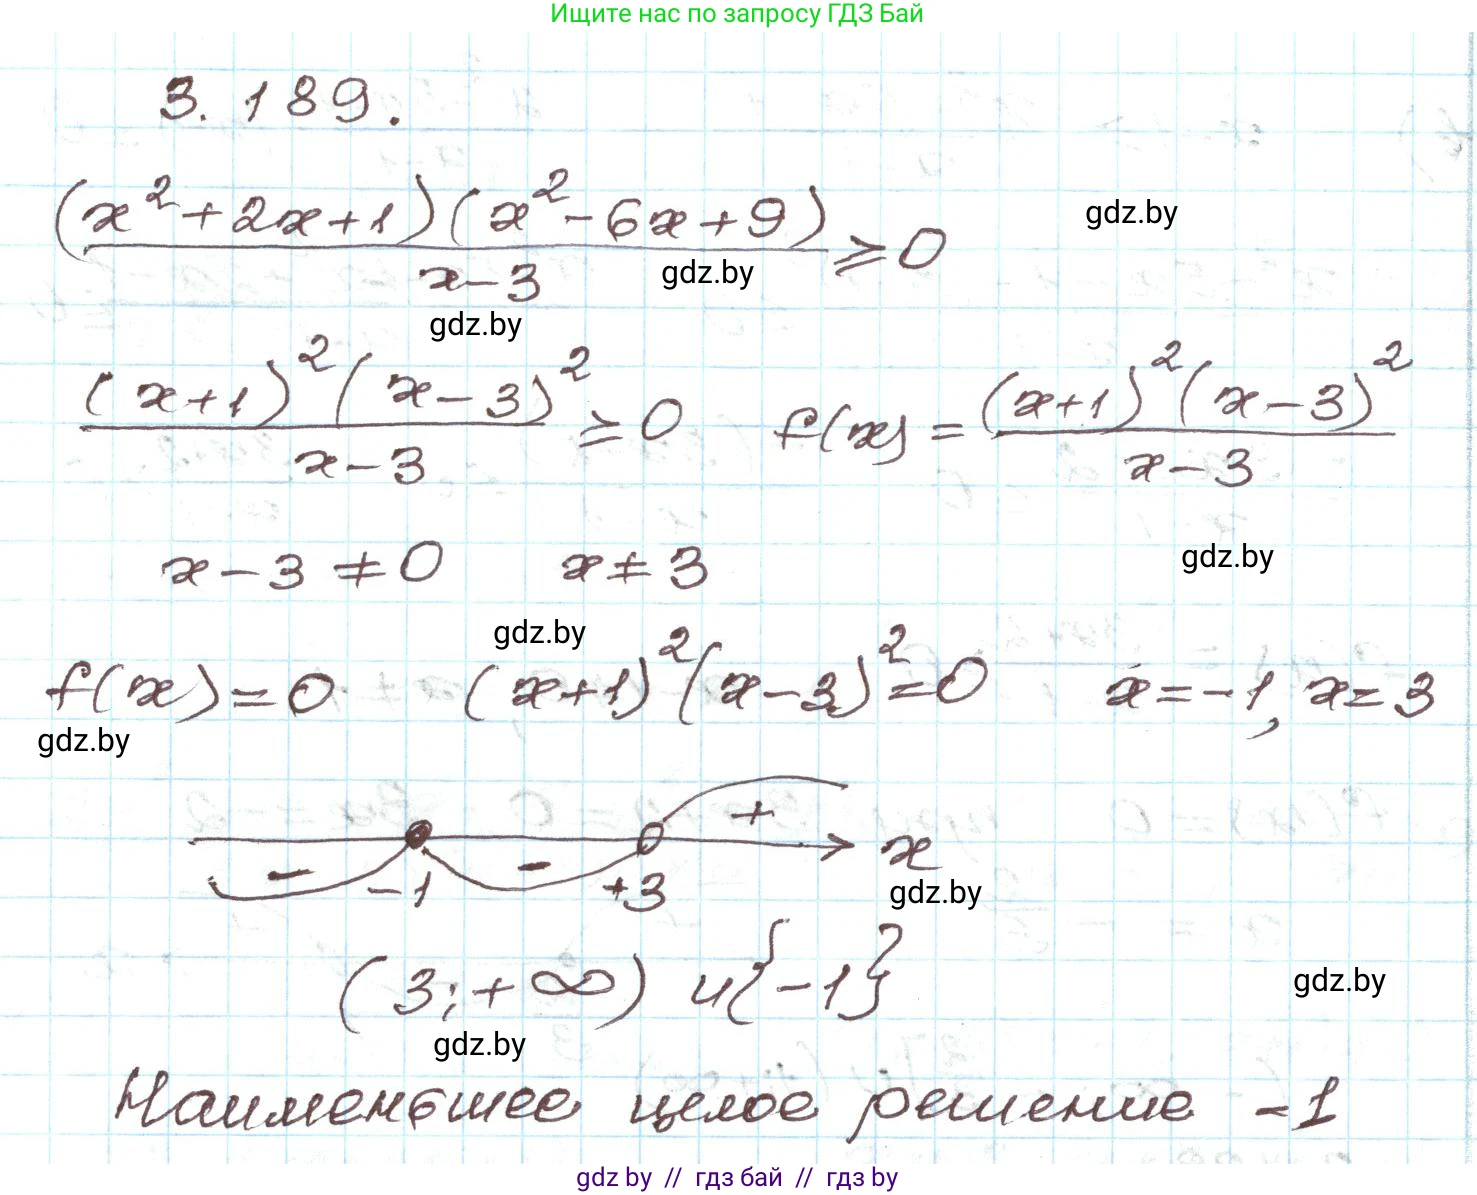 Ищите нас по запросу ГДЗ Бай
3.189.
(x²+2x+1)(x²-6x+9)/(x-3) ≥ 0
gdz.by
gdz.by
gdz.by
(x+1)²(x-3)²/(x-3) ≥ 0 f(x) = (x+1)²(x-3)²/(x-3)
x-3≠0 x≠3
gdz.by
gdz.by
f(x)=0 (x+1)²(x-3)²=0 x=-1, x=3
gdz.by
- -1 - +3 + x
gdz.by
(3;+∞) и {-1}
gdz.by
gdz.by
Наименьшее целое решение -1
gdz by // гдз бай // гдз by